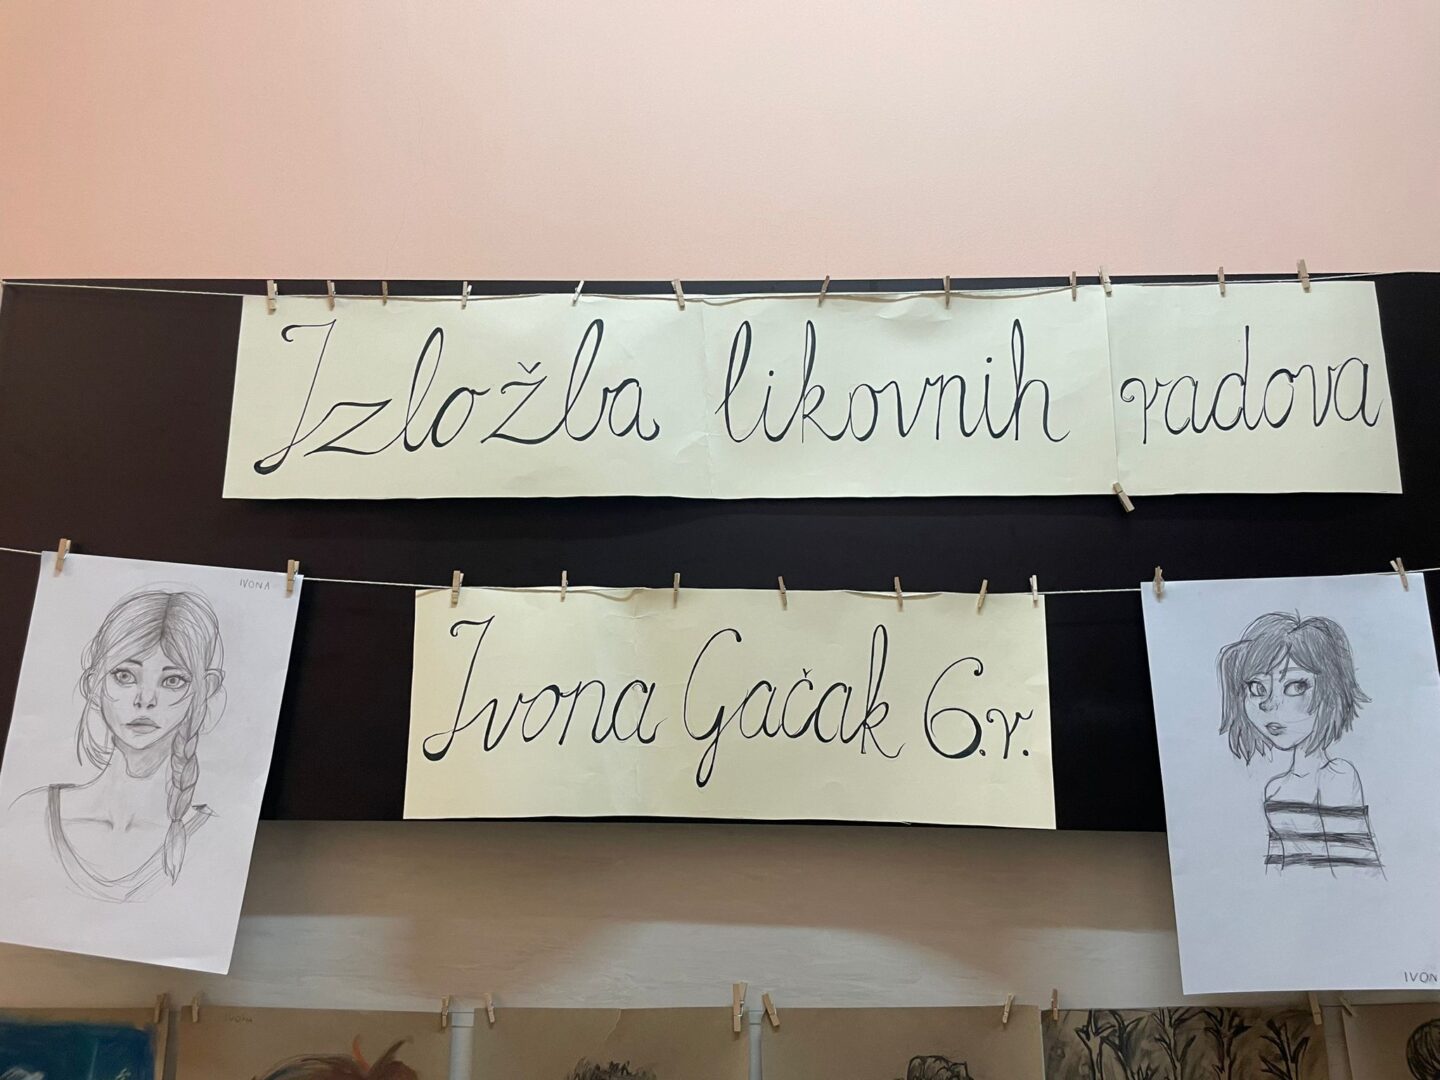 Izložba likovnih radova
IVONA
Ivona Gačak 6.r.
IVON
IVONA